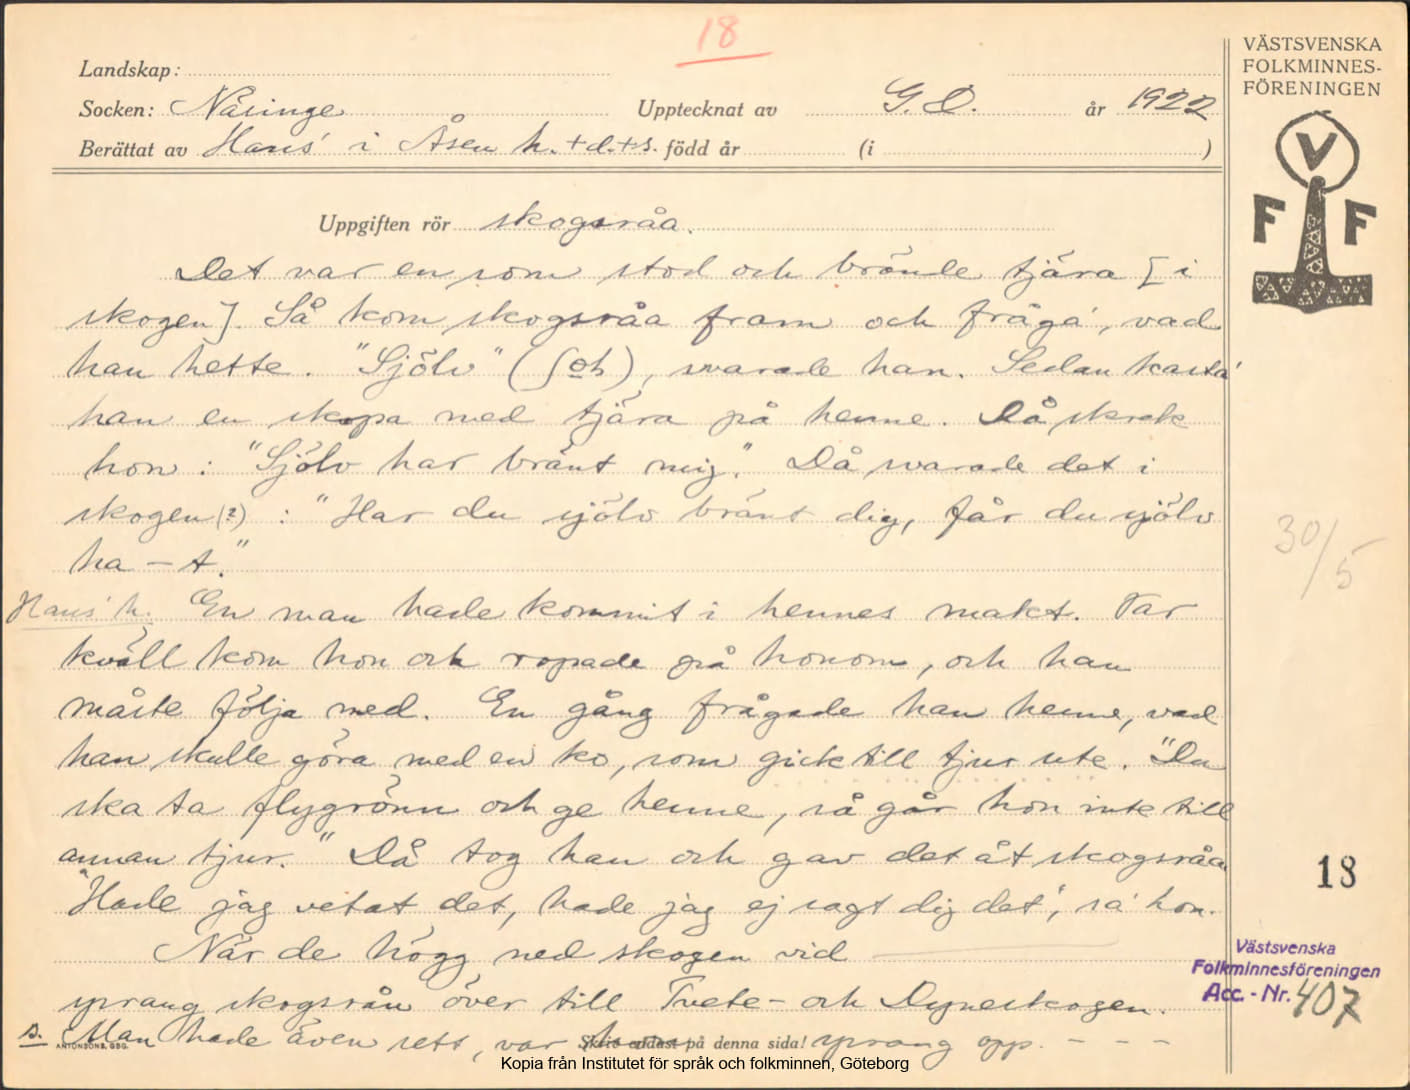 18
Landskap:
Socken: Näsinge Upptecknat av G. O. år 1922
Berättat av Hans' i Åsen h. + d. + s. född år (i )
VÄSTSVENSKA
FOLKMINNES-
FÖRENINGEN
V
F F
Uppgiften rör skogsråa.
Det var en som stod och brände tjära [i
skogen]. Så kom skogsråa fram och fråga', vad
han hette. "Sjölv" ( ), svarade han. Sedan kasta'
han en skopa med tjära på henne. Då skrek
hon: "Sjölv har bränt mig." Då svarade det i
skogen(?) : "Har du sjölv bränt dig, får du sjölv
ha-t."
Hans' h. En man hade kommit i hennes makt. Var
kväll kom hon och ropade på honom, och han
måste följa med. En gång frågade han henne, vad
han skulle göra med en ko, som gick till tjur ute. "Du
ska ta flygrönn och ge henne, så går hon inte till
annan tjur." Då tog han och gav det åt skogsråa
"Hade jag vetat det, hade jag ej sagt dig det", sa' hon.
När de högg ned skogen vid
sprang skogsrån över till Tvete- och Dyneskogen.
s. Man hade även sett, var hon sprang opp. - - -
ANTONSONS, GBG.
Skriv endast på denna sida!
30/5
18
Västsvenska
Folkminnesföreningen
Acc.-Nr. 407
Kopia från Institutet för språk och folkminnen, Göteborg